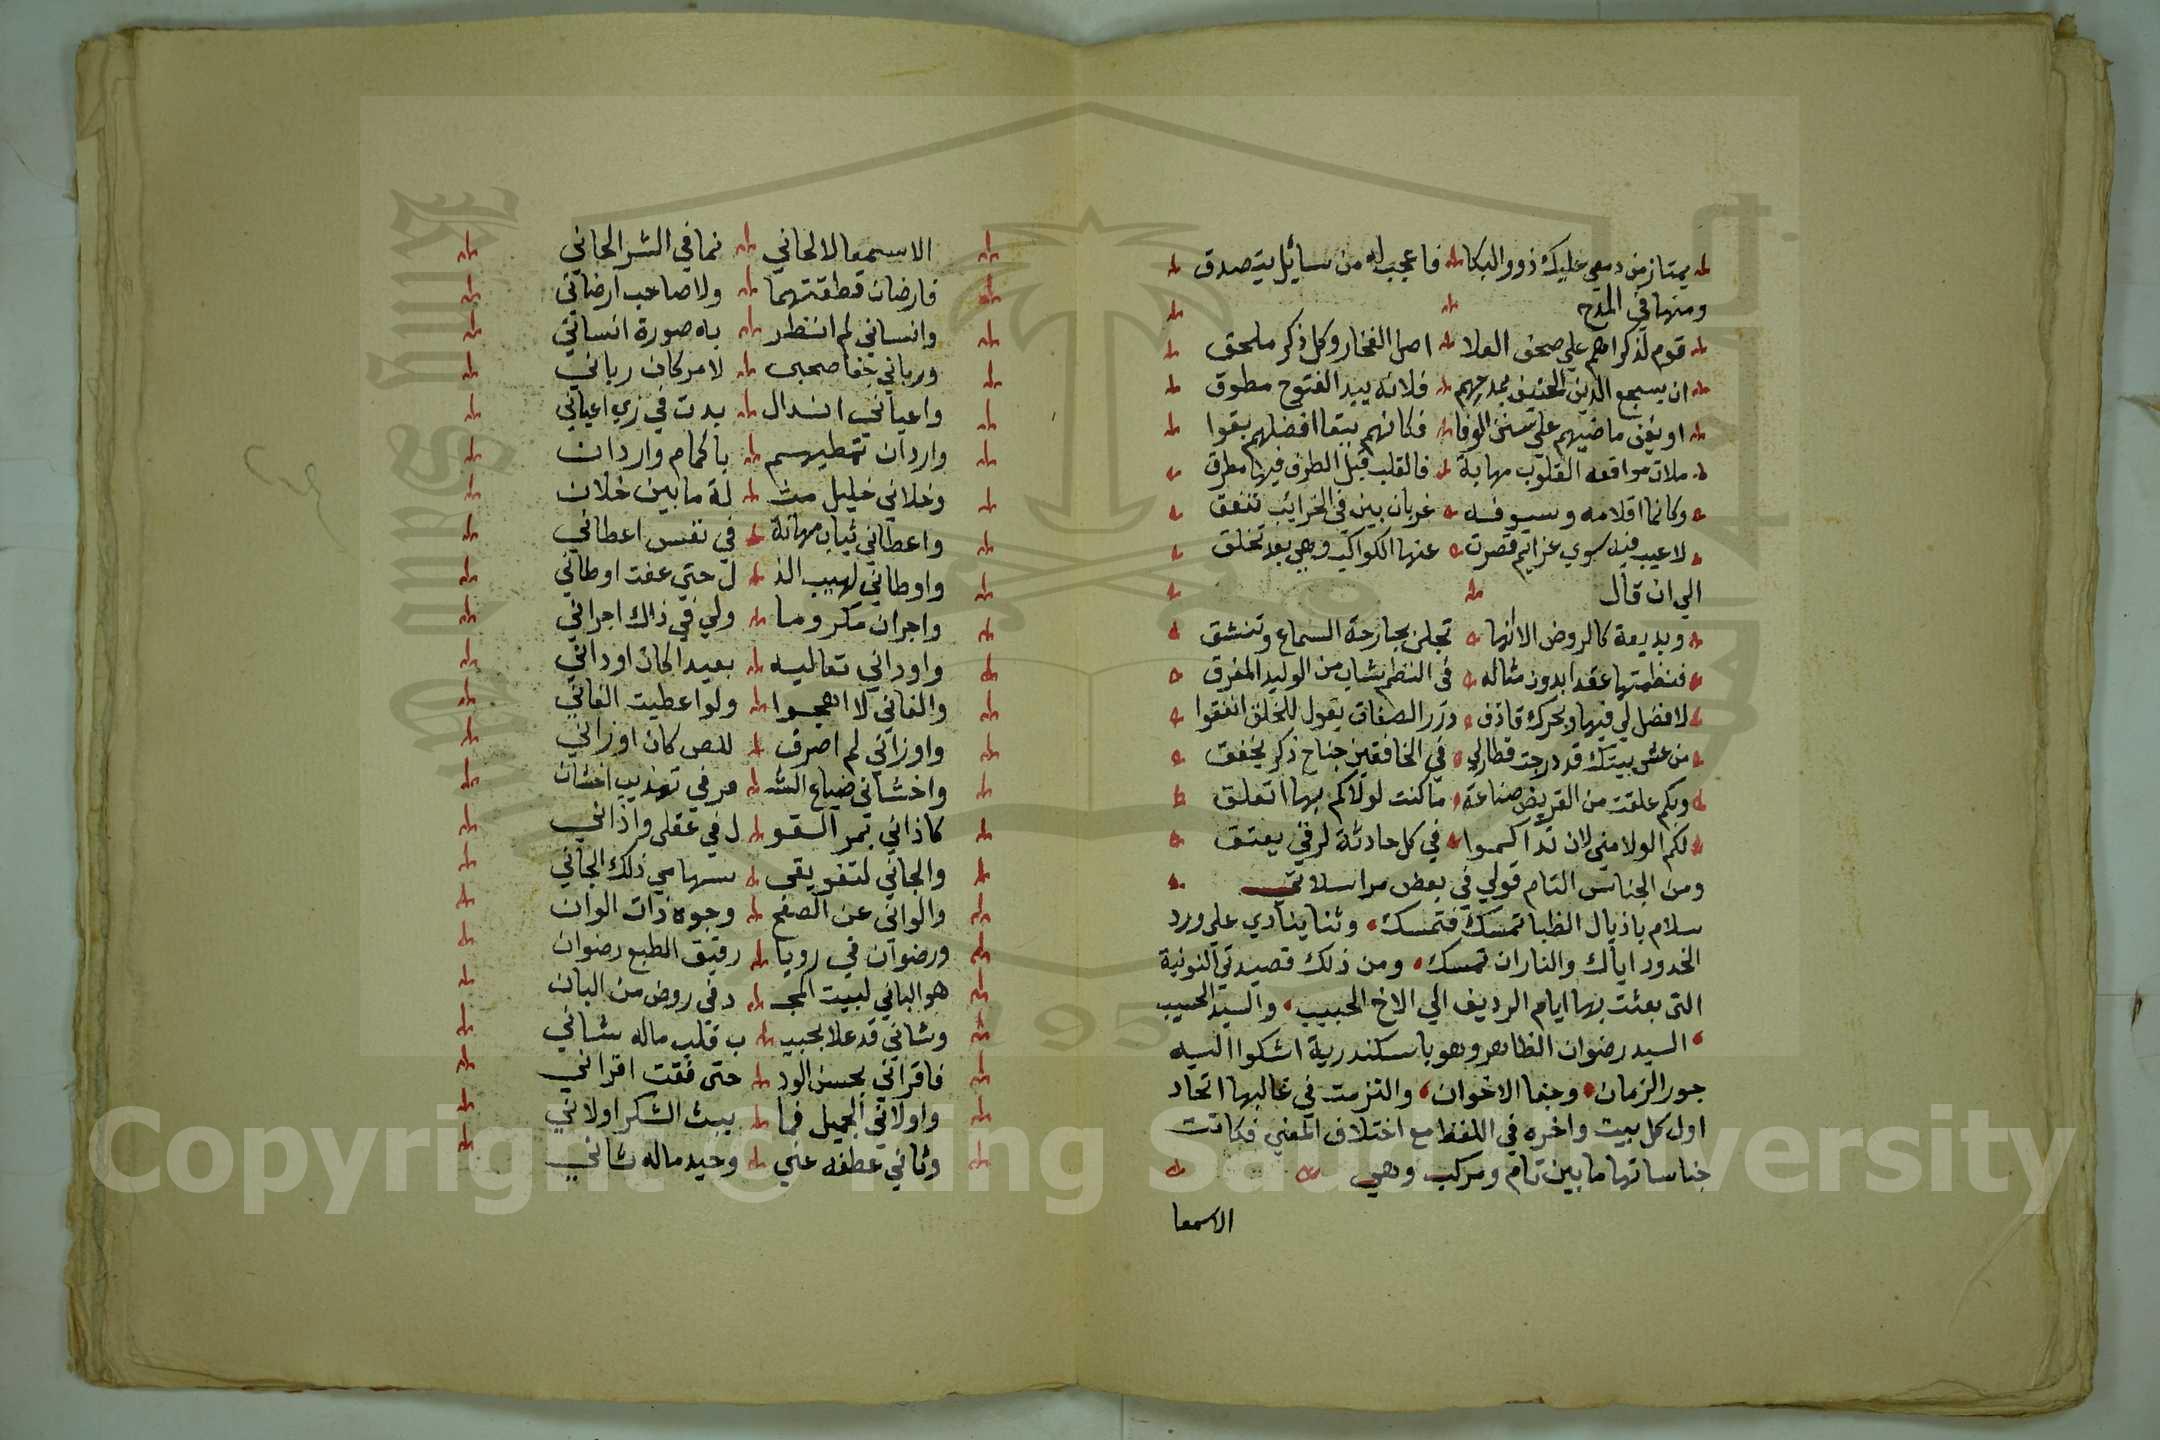 يمتاز من دمعي عليك ذوو البكا فاعجب له من سائل يتصدق
ومنها في المدح
قوم لذكراهم على صحف العلا اصل الفخار وكل ذكر ملحق
ان يسجع الدين الحنيف بمدحهم فلانه بيد الفتوح مطوق
او يفن ماضيهم على سنن الوفا فكانهم ببقا افضلهم بقوا
ملات مواقعه القلوب مهابة فالقلب قبل الطرف فيها مطرق
وكانما اقلامه وسيوفه غربان بين في الخرائب تنعق
لا عيب فيه سوي عزائم قصرت عنها الكواكب وهي بعد تحلق
الي ان قال
وبديعة كالروض الا انها تجلي بجارحة السماع وتنشق
فنظمتها عقدا بدون مثاله في النظم شاب من الوليد المفرق
لا فضل لي فيها وبحرك قاذف درر الصفات يقول للخلق انفقوا
من عش بيتك قد درجت فطار لي في الخافقين جناح ذكر يخفق
وبكم علقت من القريض صناعة ما كنت لولاكم بها اتعلق
لكم الولا مني لان نداكموا في كل حادثة لرقي يعتق
ومن الجناس التام قولي في بعض مراسلاتي
سلام باذيال الظبا تمسك فتمسك وثنا ينادي على ورد
الخدود اياك والناران تمسك ومن ذلك قصيدتي النونية
التي بعثت بها ايام الرديف الي الاخ الحبيب والسيد الحسيب
السيد رضوان الظاهر وهو باسكندرية اشكوا اليه
جور الزمان وجفا الاخوان والتزمت في غالبها اتحاد
اول كل بيت واخره في اللفظ مع اختلاف المعني فكانت
جناساتها ما بين تام ومركب وهي
الاسمعا
الاسمعا لالحاني نما في الشر الحاني
فارضان قطعتهما ولا صاحب ارضاني
وانساني لم انظر به صورة انساني
ورباني جفا صحبى لامر كان رباني
واعياني انذال بدت في زي اعياني
واردان تمطيهم باكمام واردان
وخلاني خليل من لة ما بين خلان
واعطاني ثياب مهانة في نفس اعطاني
واوطاني لهيب الذ ل حتي عفت اوطاني
واجران مكر وما ولي في ذاك اجراني
واوداني تعاليه بعيدا كان اوداني
والفاني لا اهجوا ولو اعطيت الفاني
واوزاني لم اصرف للص كان اوزاني
واخشاني ضياع الشـ ـعر في تهذيب اخشان
كاذاني بمر القو ل في عقلي واذاني
والجاني لتفويقي سهامي ذلك الجاني
والواني عن الصفح وجوه ذات الوان
ورضوان في رويا رقيق الطبع رضوان
هو الباني لبيت المجـ ـد في روض من البان
وشاني قد علا بحبيـ ـب قلب ماله شاني
فاقراني بحسن الود حتى فقت اقراني
واولاني الجميل فما يبث الشكر اولاني
وثاني عطفه عني وحيد ماله ثاني